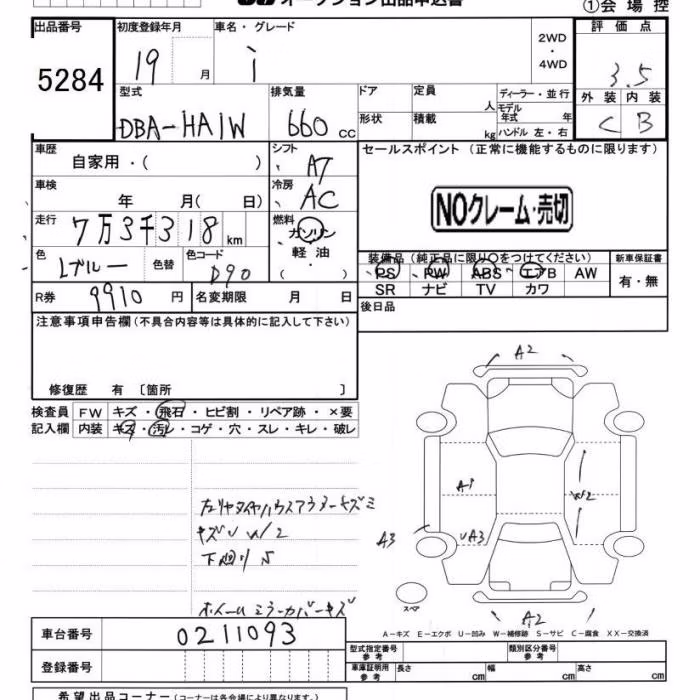 オークション出品申込書
①会場控
出品番号 初度登録年月 車名・グレード 評価点
5284 19 月 i 2WD・4WD 3.5
型式 排気量 ドア 定員 人 ディーラー・並行 外装 内装
DBA-HA1W 660 cc 形状 積載 kg モデル年式 年 ハンドル 左・右 C B
車歴 自家用・( ) シフト AT セールスポイント (正常に機能するものに限ります)
車検 年 月( 日) 冷房 AC NOクレーム・売切
走行 7万3千318km 燃料 ガソリン・軽油・( )
色 Lブルー 色替 色コード D90 装備品 (純正品に限り○をつけてください) 新車保証書
PS PW ABS エアB AW 有・無
SR ナビ TV カワ
R券 9910円 名変期限 月 日 後日品
注意事項申告欄(不具合内容等は具体的に記入して下さい)
修復歴 有 〔箇所 〕
検査員 FW キズ・飛石・ヒビ割・リペア跡・×要
記入欄 内装 キズ・汚レ・コゲ・穴・スレ・キレ・破レ
A2
A1 W2
A3 UA3
A2
キズU W/2
下廻りS
ホイールミラーカバーキズ
スペア
A-キズ E-エクボ U-凹み W-補修跡 S-サビ C-腐食 XX-交換済
車台番号 0211093
型式指定番号 参考 類別区分番号 参考
登録番号 車庫証明用 参考 長さ cm 幅 cm 高さ cm
希望出品コーナー(コーナーは各会場により異なります)